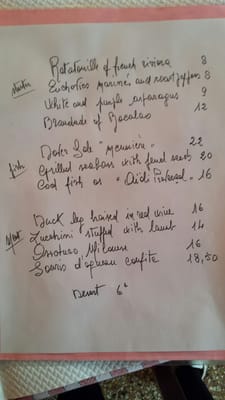 Ratatouille of french riviera 8
starter Enchovies marinés and roast peppers 8
White and purple asparagus 9
Brandade of Bacalao 12
Dover Sole "meunière" 22
fish Grilled seabass with fenel seeds 20
Cod fish as "Aïoli Provençal" 16
Duck leg braised in red wine 16
Meat Zucchini stuffed with lamb 14
Ossobuco Milanese 16
Souris d'agneau confite 18,50
Desert 6€